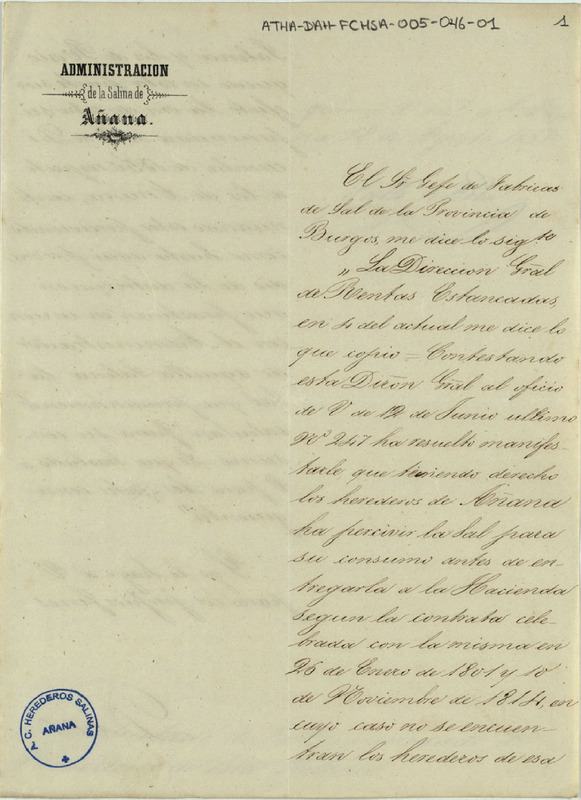 ATHA-DAH-FCHSA-005-046-01
1
ADMINISTRACION
de la Salina de
Añana.
El Sr Gefe de Fabricas
de Sal de la Provincia de
Burgos, me dice lo sigte
„La Direccion Gral
de Rentas Estancadas,
en 4 del actual me dice lo
que copio = Contestando
esta Dirōn Gral al oficio
de V de 12 de Junio ultimo
nº 247 ha resuelto manifes-
tarle, que teniendo derecho
los herederos de Añana
ha percivir la Sal para
su consumo antes de en-
tregarla a la Hacienda
segun la contrata cele-
brada con la misma en
26 de Enero de 1801 y 10
de Noviembre de 1814, en
cuyo caso no se encuen-
tran los herederos de esa
C. HEREDEROS SALINAS
AÑANA